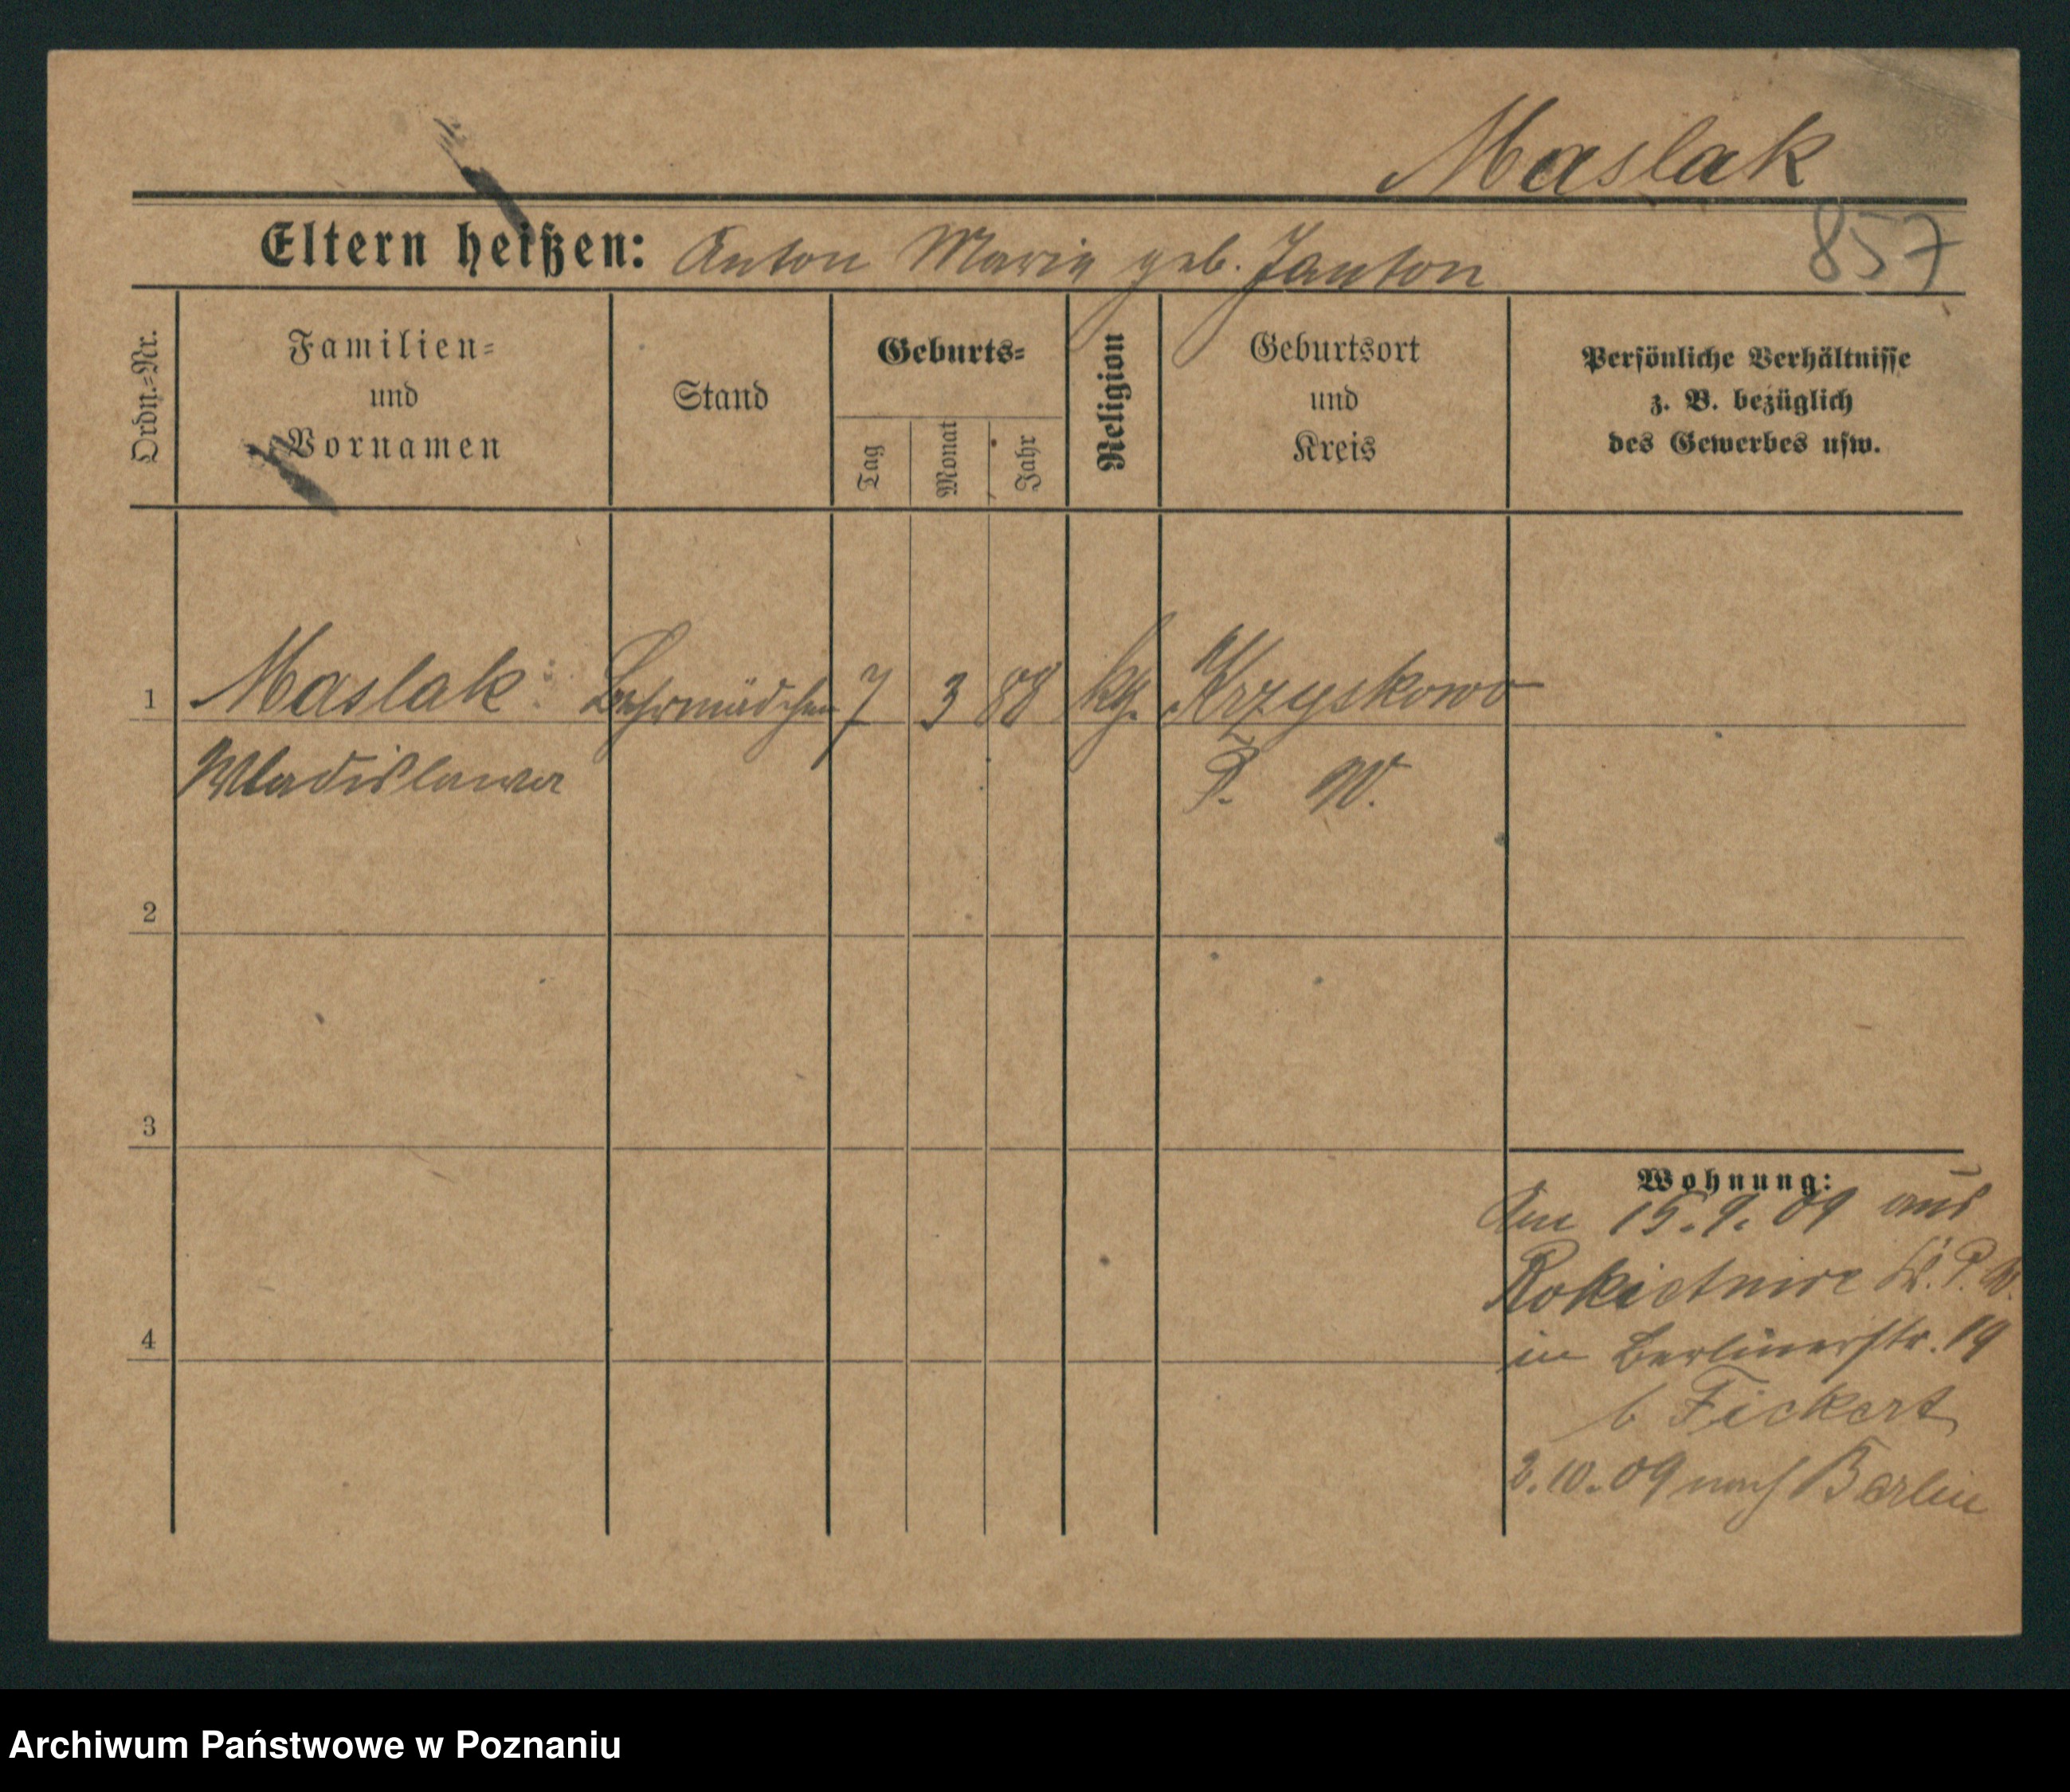 Maslak
857
Eltern heißen: Anton Marie geb. Janton
Ordn.=Nr.
Familien=
und
Vornamen
Stand
Geburts=
Tag
Monat
Jahr
Religion
Geburtsort
und
Kreis
Persönliche Verhältnisse
z. B. bezüglich
des Gewerbes usw.
1 Maslak Lehrmädchen 7 3 88 kth. Krzyskowo
Wladislawa P. W.
2
3
4
Wohnung:
Am 15.9.09 aus
Rokietnice Kr. P. W.
in Berlinerstr. 19
b Fickert
2.10.09 nach Berlin
Archiwum Państwowe w Poznaniu